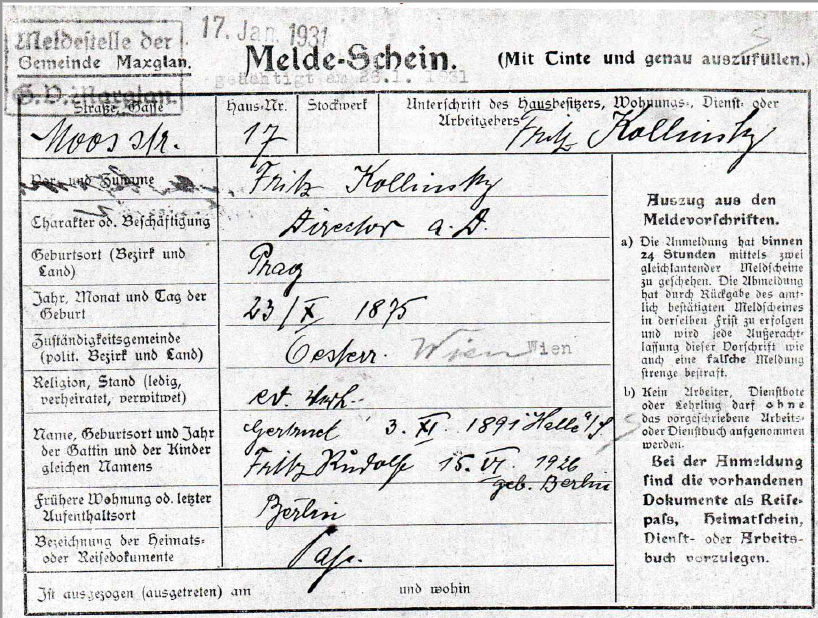 Meldestelle der
Gemeinde Maxglan.
17. Jan. 1931
Melde-Schein.
(Mit Tinte und genau auszufüllen.)
1931
Straße, Gasse
Haus-Nr.
Stockwerk
Unterschrift des Hausbesitzers, Wohnungs-, Dienst- oder
Arbeitgebers
Moosstr.
17
Fritz Kollinsky
Vor- und Zuname
Fritz Kollinsky
Charakter od. Beschäftigung
Director a. D.
Geburtsort (Bezirk und
Land)
Prag
Jahr, Monat und Tag der
Geburt
23/X 1875
Zuständigkeitsgemeinde
(polit. Bezirk und Land)
Oesterr. Wien Wien
Religion, Stand (ledig,
verheiratet, verwitwet)
ev. verh.
Name, Geburtsort und Jahr
der Gattin und der Kinder
gleichen Namens
Gertrud 3. XI. 1891 Halle a/S
Fritz Rudolf 15. VI. 1926
geb. Berlin
Frühere Wohnung od. letzter
Aufenthaltsort
Berlin
Bezeichnung der Heimats-
oder Reisedokumente
Pass.
Ist ausgezogen (ausgetreten) am und wohin
Auszug aus den
Meldevorschriften.
a) Die Anmeldung hat binnen
24 Stunden mittels zwei
gleichlautender Meldscheine
zu geschehen. Die Abmeldung
hat durch Rückgabe des amt-
lich bestätigten Meldscheines
in derselben Frist zu erfolgen
und wird jede Außeracht-
lassung dieser Vorschrift wie
auch eine falsche Meldung
strenge bestraft.
b) Kein Arbeiter, Dienstbote
oder Lehrling darf ohne
das vorgeschriebene Arbeits-
oder Dienstbuch aufgenommen
werden.
Bei der Anmeldung
sind die vorhandenen
Dokumente als Reise-
pass, Heimatschein,
Dienst- oder Arbeits-
buch vorzulegen.